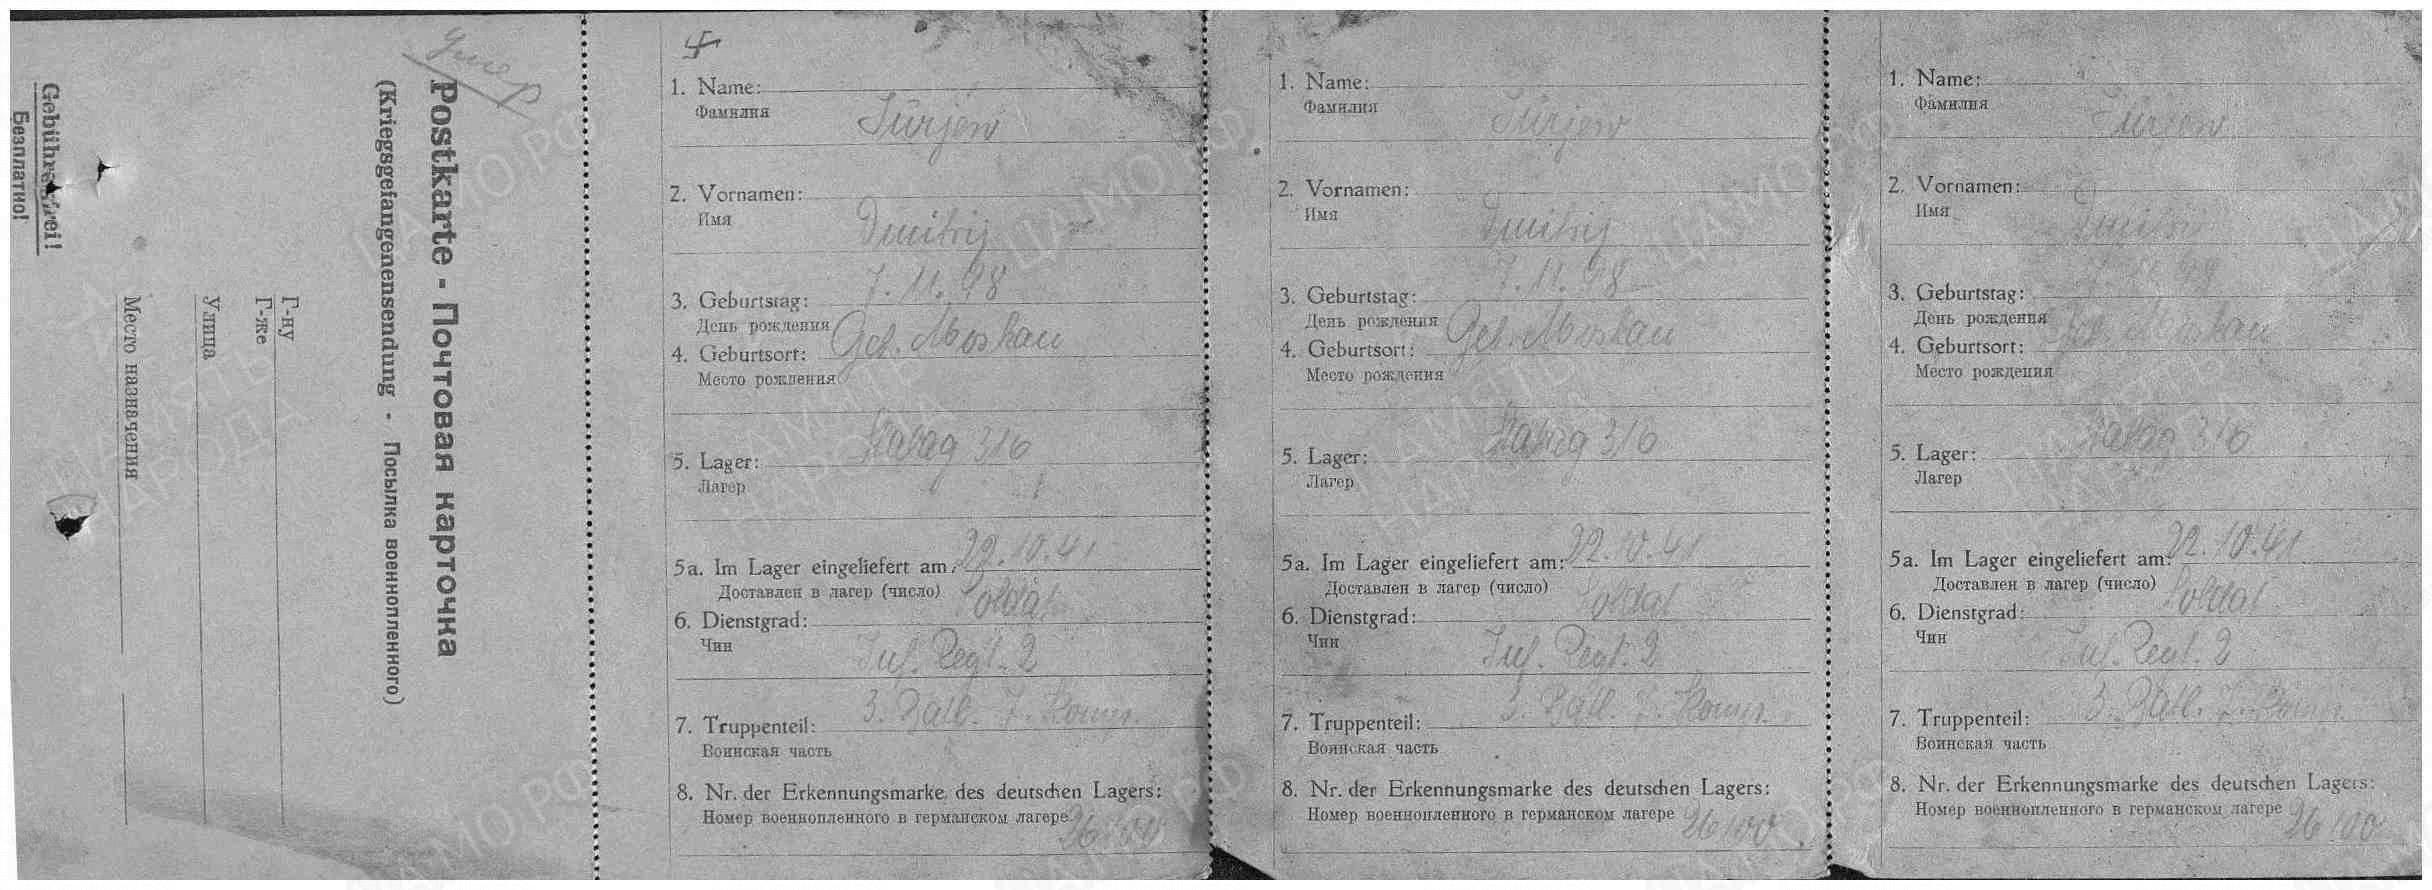 умер
Postkarte - Почтовая карточка
(Kriegsgefangenensendung - Посылка военнопленного)
Г-ну
Г-же
Улица
Место назначения
Gebührenfrei!
Безплатно!
1. Name:
Фамилия
Jürjew
2. Vornamen:
Имя
Dmitrij
7. 11. 98
3. Geburtstag:
День рождения
Geb. Moskau
4. Geburtsort:
Место рождения
Stalag 316
5. Lager:
Лагер
22. 10. 41
5a. Im Lager eingeliefert am:
Доставлен в лагер (число)
Soldat
6. Dienstgrad:
Чин
Inf. Regt. 2
3. Batl. 7. Komp.
7. Truppenteil:
Воинская часть
8. Nr. der Erkennungsmarke des deutschen Lagers:
Номер военнопленного в германском лагере
26100
1. Name:
Фамилия
Jürjew
2. Vornamen:
Имя
Dmitrij
7. 11. 98
3. Geburtstag:
День рождения
Geb. Moskau
4. Geburtsort:
Место рождения
Stalag 316
5. Lager:
Лагер
22. 10. 41
5a. Im Lager eingeliefert am:
Доставлен в лагер (число)
Soldat
6. Dienstgrad:
Чин
Inf. Regt. 2
3. Batl. 7. Komp.
7. Truppenteil:
Воинская часть
8. Nr. der Erkennungsmarke des deutschen Lagers:
Номер военнопленного в германском лагере
26100
1. Name:
Фамилия
Jürjew
2. Vornamen:
Имя
Dmitrij
3. Geburtstag:
День рождения
Geb. Moskau
4. Geburtsort:
Место рождения
Stalag 316
5. Lager:
Лагер
22. 10. 41
5a. Im Lager eingeliefert am:
Доставлен в лагер (число)
Soldat
6. Dienstgrad:
Чин
Inf. Regt. 2
3. Batl. 7. Komp.
7. Truppenteil:
Воинская часть
8. Nr. der Erkennungsmarke des deutschen Lagers:
Номер военнопленного в германском лагере
26100